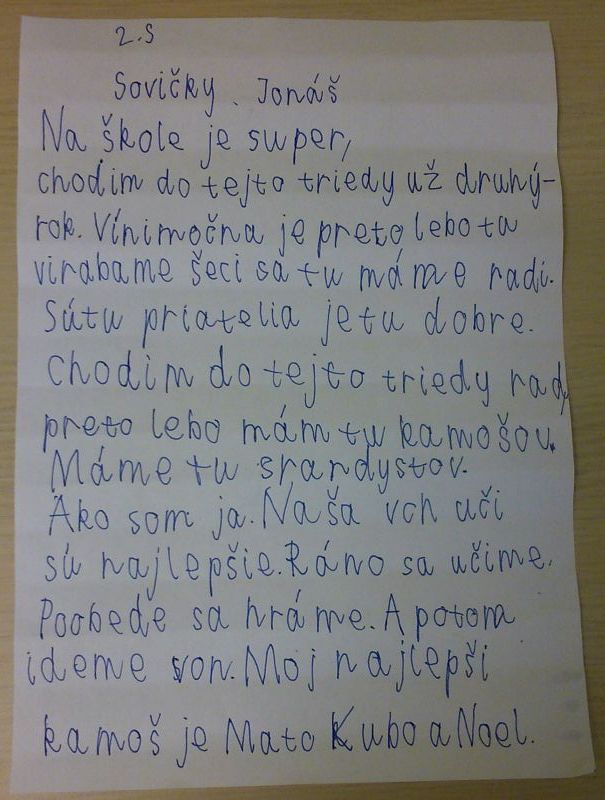 2.S
Sovičky Jonáš
Na škole je super,
chodim do tejto triedy už druhý-
rok. Vínimočna je preto lebo tu
virabame šeci sa tu máme radi.
Sútu priatelia jetu dobre.
Chodim do tejto triedy rad,
preto lebo mám tu kamošov.
Máme tu srandystov.
Ako som ja. Naša vch uči
sú najlepšie. Ráno sa učime.
Poobede sa hráme. A potom
ideme von. Moj najlepši
kamoš je Mato Kubo a Noel.